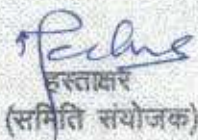 हस्ताक्षर
(समिति संयोजक)